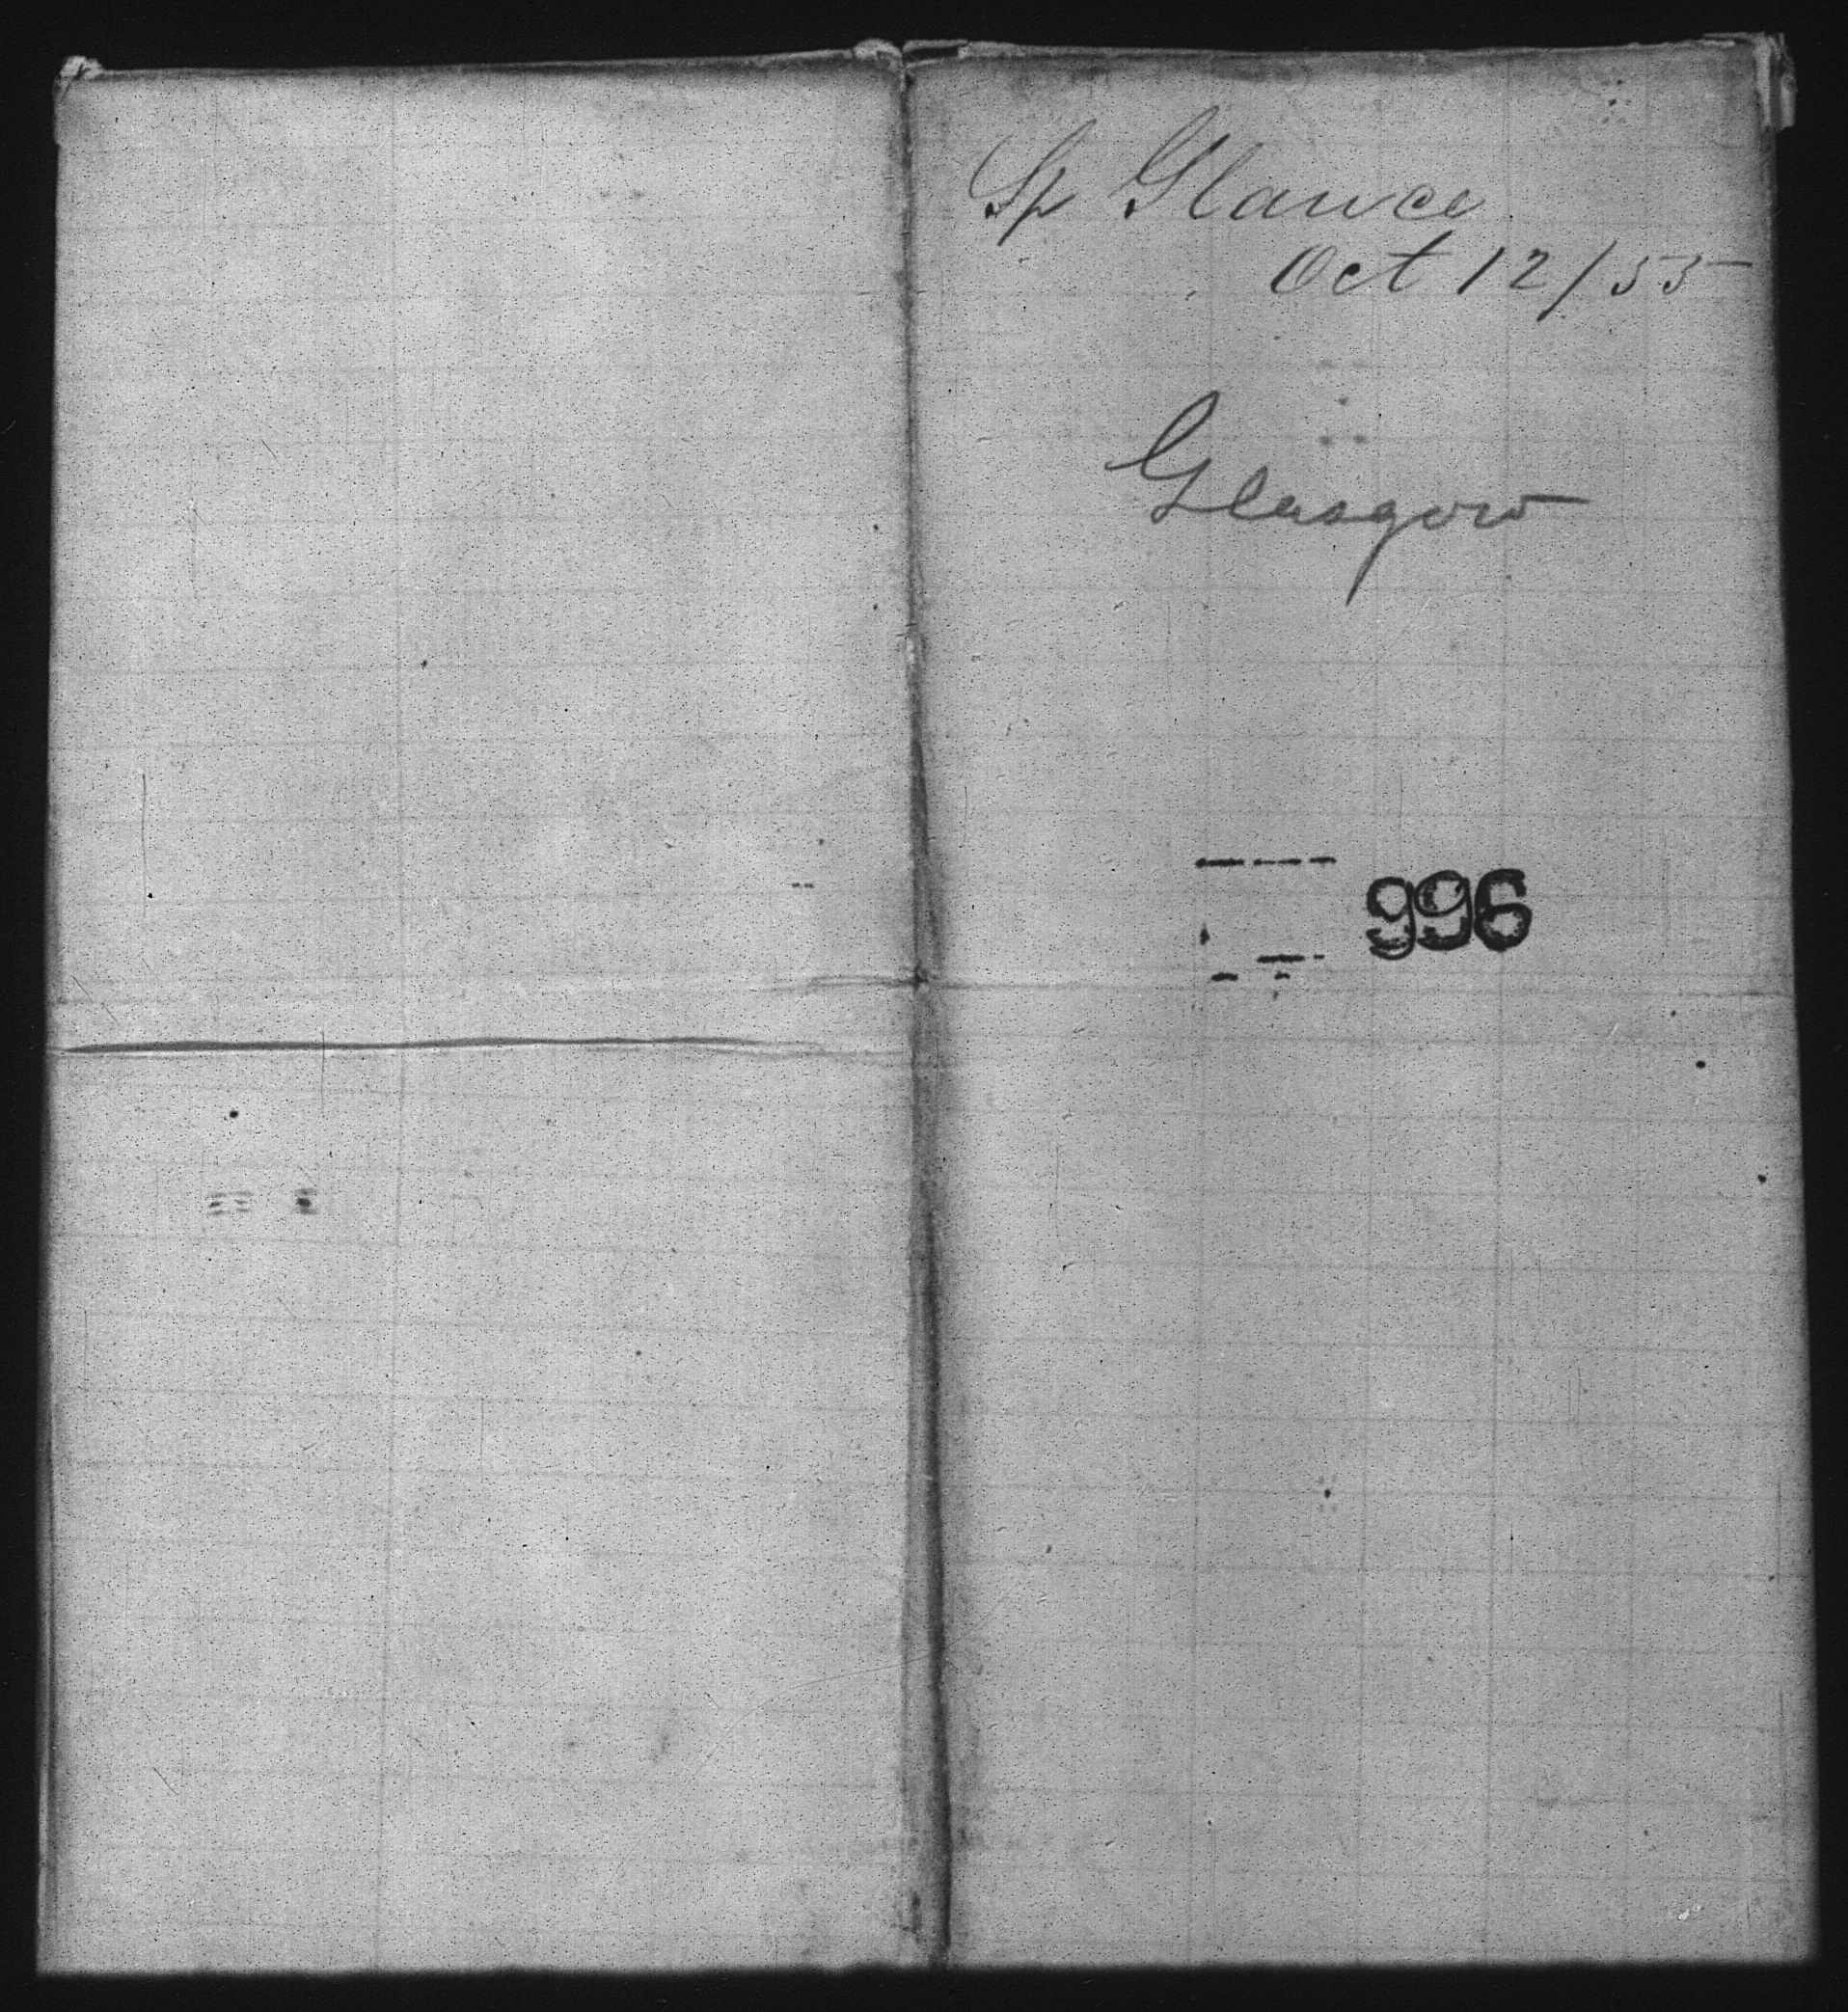 Sp Glauce
Oct 12/55
Glasgow
996